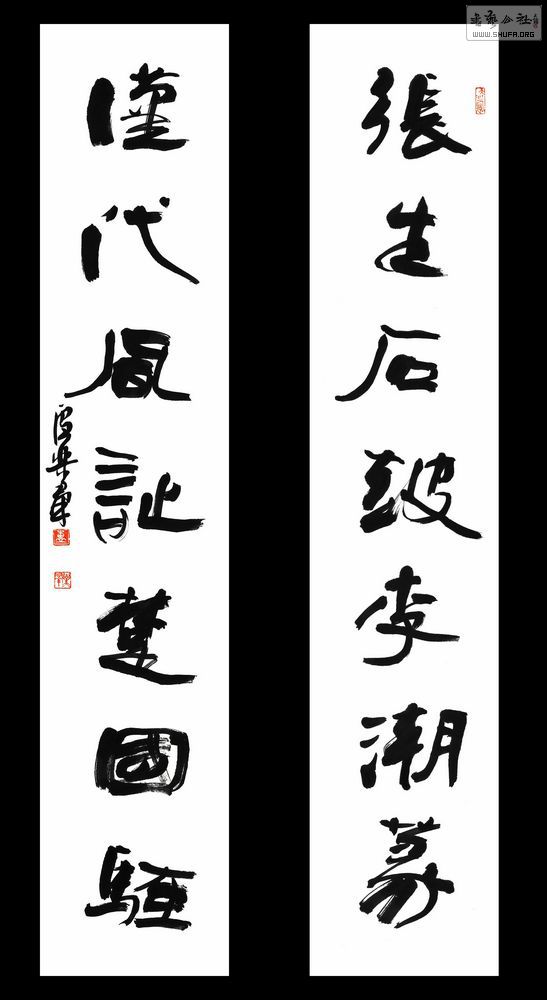 書藝公社
WWW.SHUFA.ORG
張生石鼓李潮篆
漢代風詩楚國騷